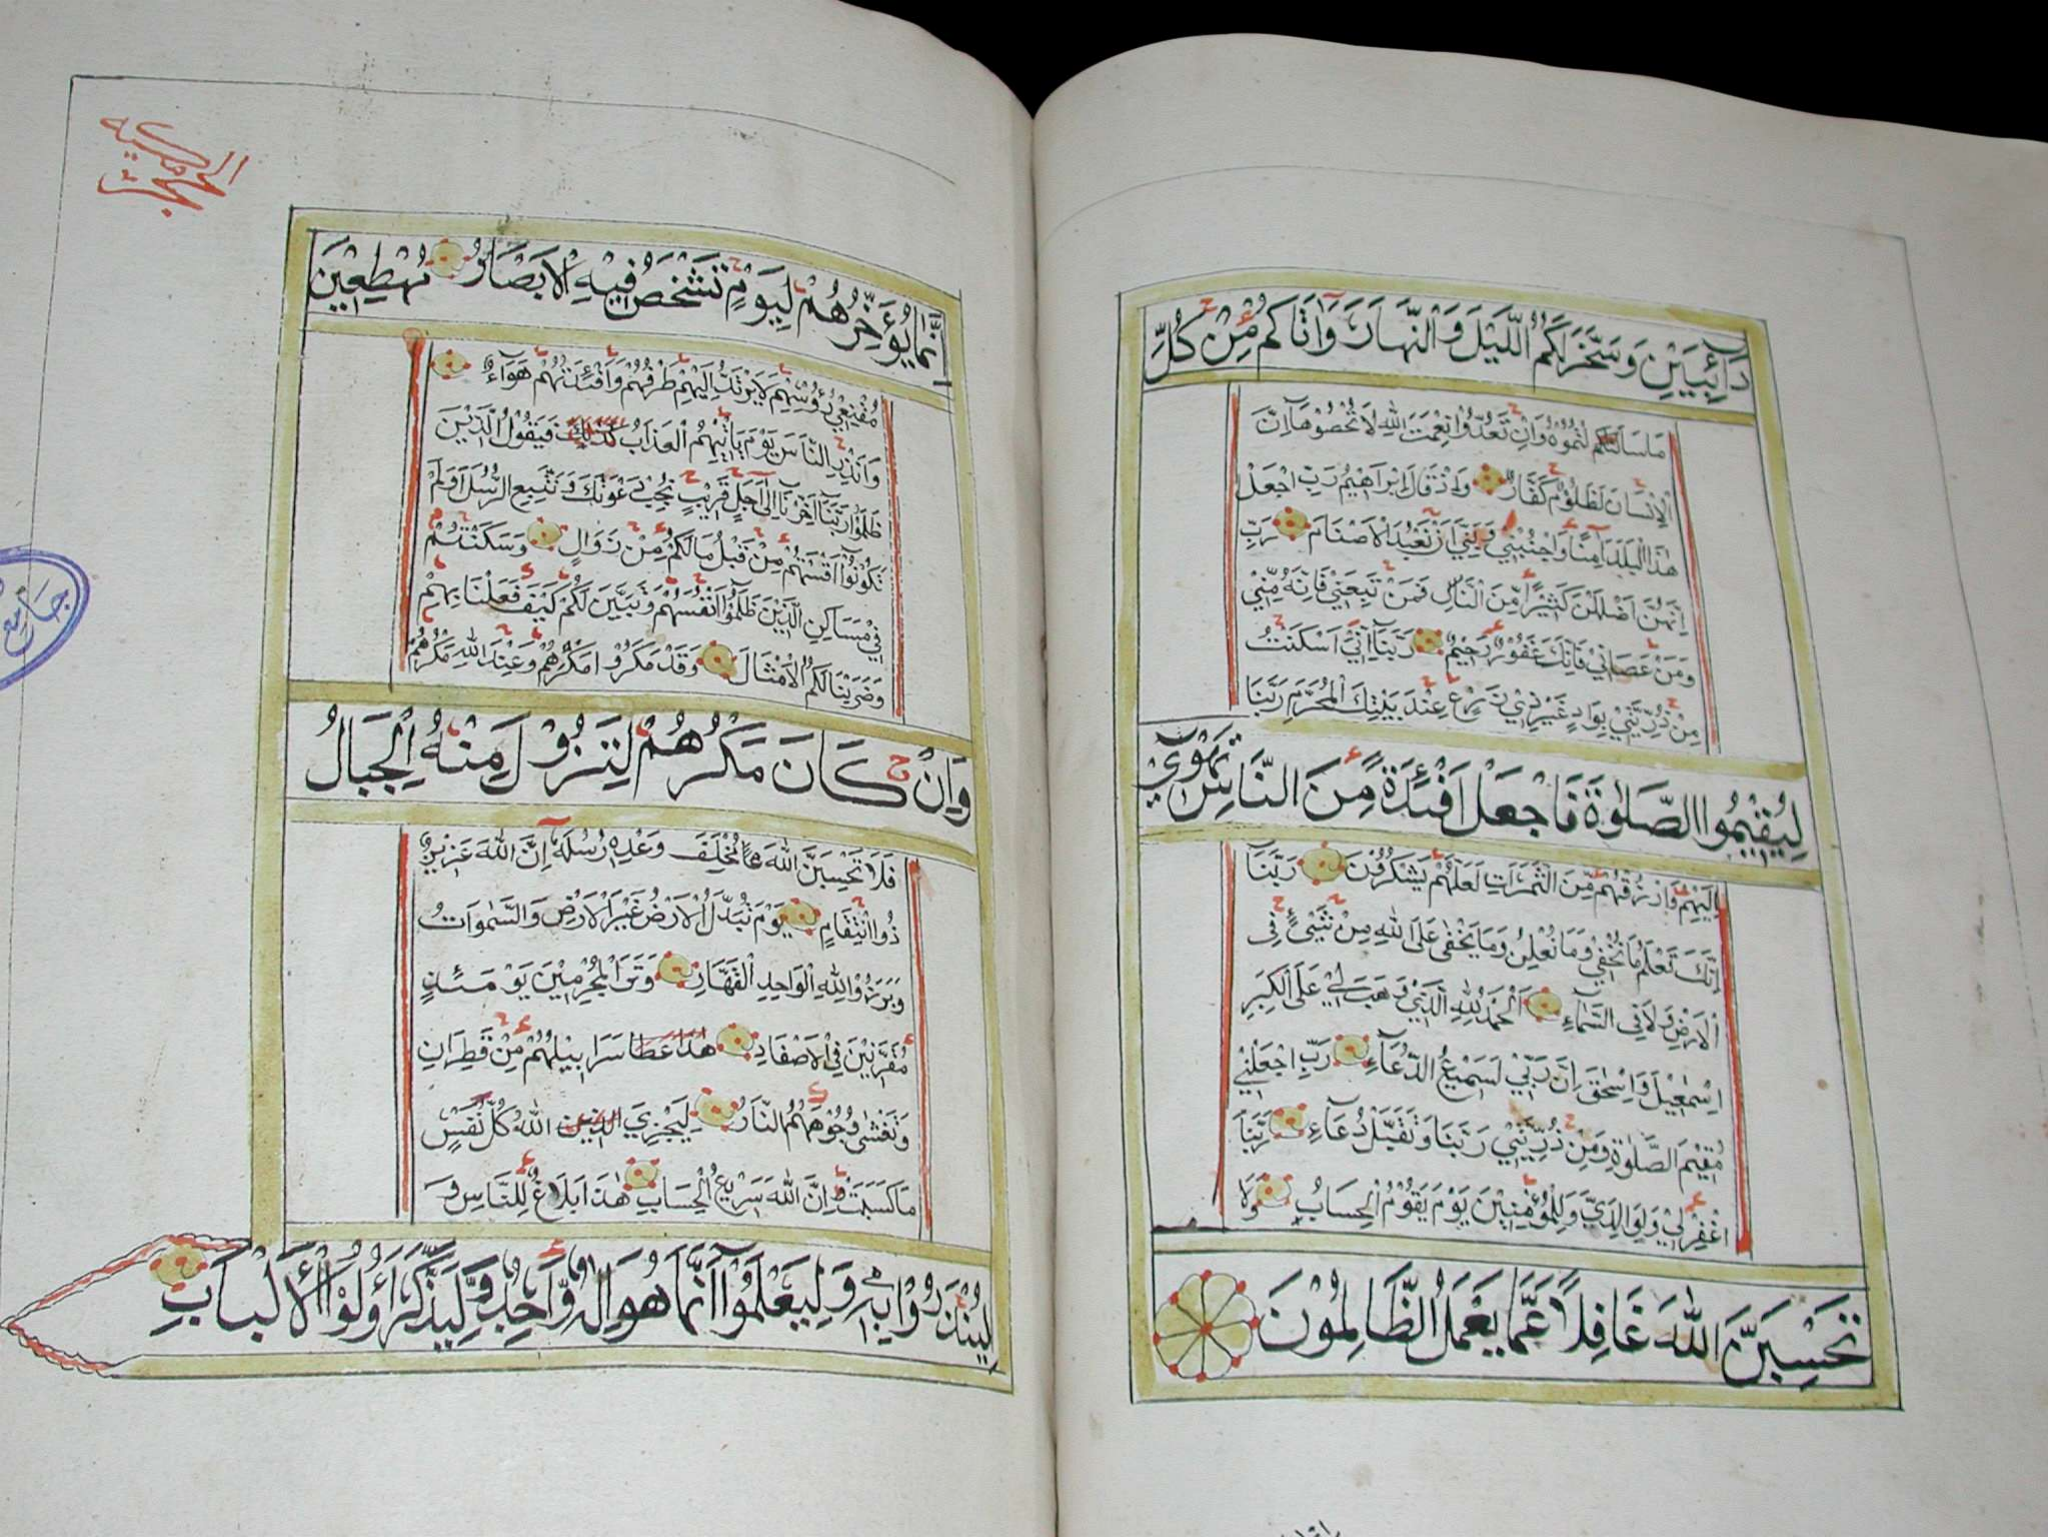 دَآئِبَيْنِ وَسَخَّرَ لَكُمُ اللَّيْلَ وَالنَّهَارَ وَاٰتَاكُمْ مِنْ كُلِّ
مَا سَاَلْتُمُوهُ وَاِنْ تَعُدُّوا نِعْمَتَ اللّٰهِ لَا تُحْصُوهَا اِنَّ
الْاِنْسَانَ لَظَلُومٌ كَفَّارٌ وَاِذْ قَالَ اِبْرَاهِيمُ رَبِّ اجْعَلْ
هٰذَا الْبَلَدَ اٰمِنًا وَاجْنُبْنِي وَبَنِيَّ اَنْ نَعْبُدَ الْاَصْنَامَ رَبِّ
اِنَّهُنَّ اَضْلَلْنَ كَثِيرًا مِنَ النَّاسِ فَمَنْ تَبِعَنِي فَاِنَّهُ مِنِّي
وَمَنْ عَصَانِي فَاِنَّكَ غَفُورٌ رَحِيمٌ رَبَّنَا اِنِّي اَسْكَنْتُ
مِنْ ذُرِّيَّتِي بِوَادٍ غَيْرِ ذِي زَرْعٍ عِنْدَ بَيْتِكَ الْمُحَرَّمِ رَبَّنَا
لِيُقِيمُوا الصَّلٰوةَ فَاجْعَلْ اَفْئِدَةً مِنَ النَّاسِ تَهْوِي
اِلَيْهِمْ وَارْزُقْهُمْ مِنَ الثَّمَرَاتِ لَعَلَّهُمْ يَشْكُرُونَ رَبَّنَا
اِنَّكَ تَعْلَمُ مَا نُخْفِي وَمَا نُعْلِنُ وَمَا يَخْفٰى عَلَى اللّٰهِ مِنْ شَيْءٍ فِي
الْاَرْضِ وَلَا فِي السَّمَاءِ اَلْحَمْدُ لِلّٰهِ الَّذِي وَهَبَ لِي عَلَى الْكِبَرِ
اِسْمٰعِيلَ وَاِسْحٰقَ اِنَّ رَبِّي لَسَمِيعُ الدُّعَاءِ رَبِّ اجْعَلْنِي
مُقِيمَ الصَّلٰوةِ وَمِنْ ذُرِّيَّتِي رَبَّنَا وَتَقَبَّلْ دُعَاءِ رَبَّنَا
اغْفِرْ لِي وَلِوَالِدَيَّ وَلِلْمُؤْمِنِينَ يَوْمَ يَقُومُ الْحِسَابُ وَلَا
تَحْسَبَنَّ اللّٰهَ غَافِلًا عَمَّا يَعْمَلُ الظَّالِمُونَ
اِنَّمَا يُؤَخِّرُهُمْ لِيَوْمٍ تَشْخَصُ فِيهِ الْاَبْصَارُ مُهْطِعِينَ
مُقْنِعِي رُءُوسِهِمْ لَا يَرْتَدُّ اِلَيْهِمْ طَرْفُهُمْ وَاَفْئِدَتُهُمْ هَوَاءٌ
وَاَنْذِرِ النَّاسَ يَوْمَ يَاْتِيهِمُ الْعَذَابُ فَيَقُولُ الَّذِينَ
ظَلَمُوا رَبَّنَا اَخِّرْنَا اِلٰى اَجَلٍ قَرِيبٍ نُجِبْ دَعْوَتَكَ وَنَتَّبِعِ الرُّسُلَ اَوَلَمْ
تَكُونُوا اَقْسَمْتُمْ مِنْ قَبْلُ مَا لَكُمْ مِنْ زَوَالٍ وَسَكَنْتُمْ
فِي مَسَاكِنِ الَّذِينَ ظَلَمُوا اَنْفُسَهُمْ وَتَبَيَّنَ لَكُمْ كَيْفَ فَعَلْنَا بِهِمْ
وَضَرَبْنَا لَكُمُ الْاَمْثَالَ وَقَدْ مَكَرُوا مَكْرَهُمْ وَعِنْدَ اللّٰهِ مَكْرُهُمْ
وَاِنْ كَانَ مَكْرُهُمْ لِتَزُولَ مِنْهُ الْجِبَالُ
فَلَا تَحْسَبَنَّ اللّٰهَ مُخْلِفَ وَعْدِهِ رُسُلَهُ اِنَّ اللّٰهَ عَزِيزٌ
ذُو انْتِقَامٍ يَوْمَ تُبَدَّلُ الْاَرْضُ غَيْرَ الْاَرْضِ وَالسَّمٰوَاتُ
وَبَرَزُوا لِلّٰهِ الْوَاحِدِ الْقَهَّارِ وَتَرَى الْمُجْرِمِينَ يَوْمَئِذٍ
مُقَرَّنِينَ فِي الْاَصْفَادِ سَرَابِيلُهُمْ مِنْ قَطِرَانٍ
وَتَغْشٰى وُجُوهَهُمُ النَّارُ لِيَجْزِيَ اللّٰهُ كُلَّ نَفْسٍ
مَا كَسَبَتْ اِنَّ اللّٰهَ سَرِيعُ الْحِسَابِ هٰذَا بَلَاغٌ لِلنَّاسِ وَ
لِيُنْذَرُوا بِهِ وَلِيَعْلَمُوا اَنَّمَا هُوَ اِلٰهٌ وَاحِدٌ وَلِيَذَّكَّرَ اُولُوا الْاَلْبَابِ
جامع